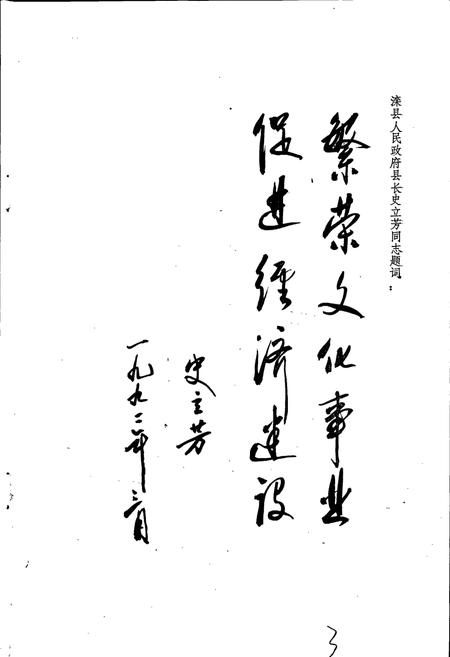 滦县人民政府县长史立芳同志题词：
繁荣文化事业
促进经济建设
史立芳
一九九二年三月
3